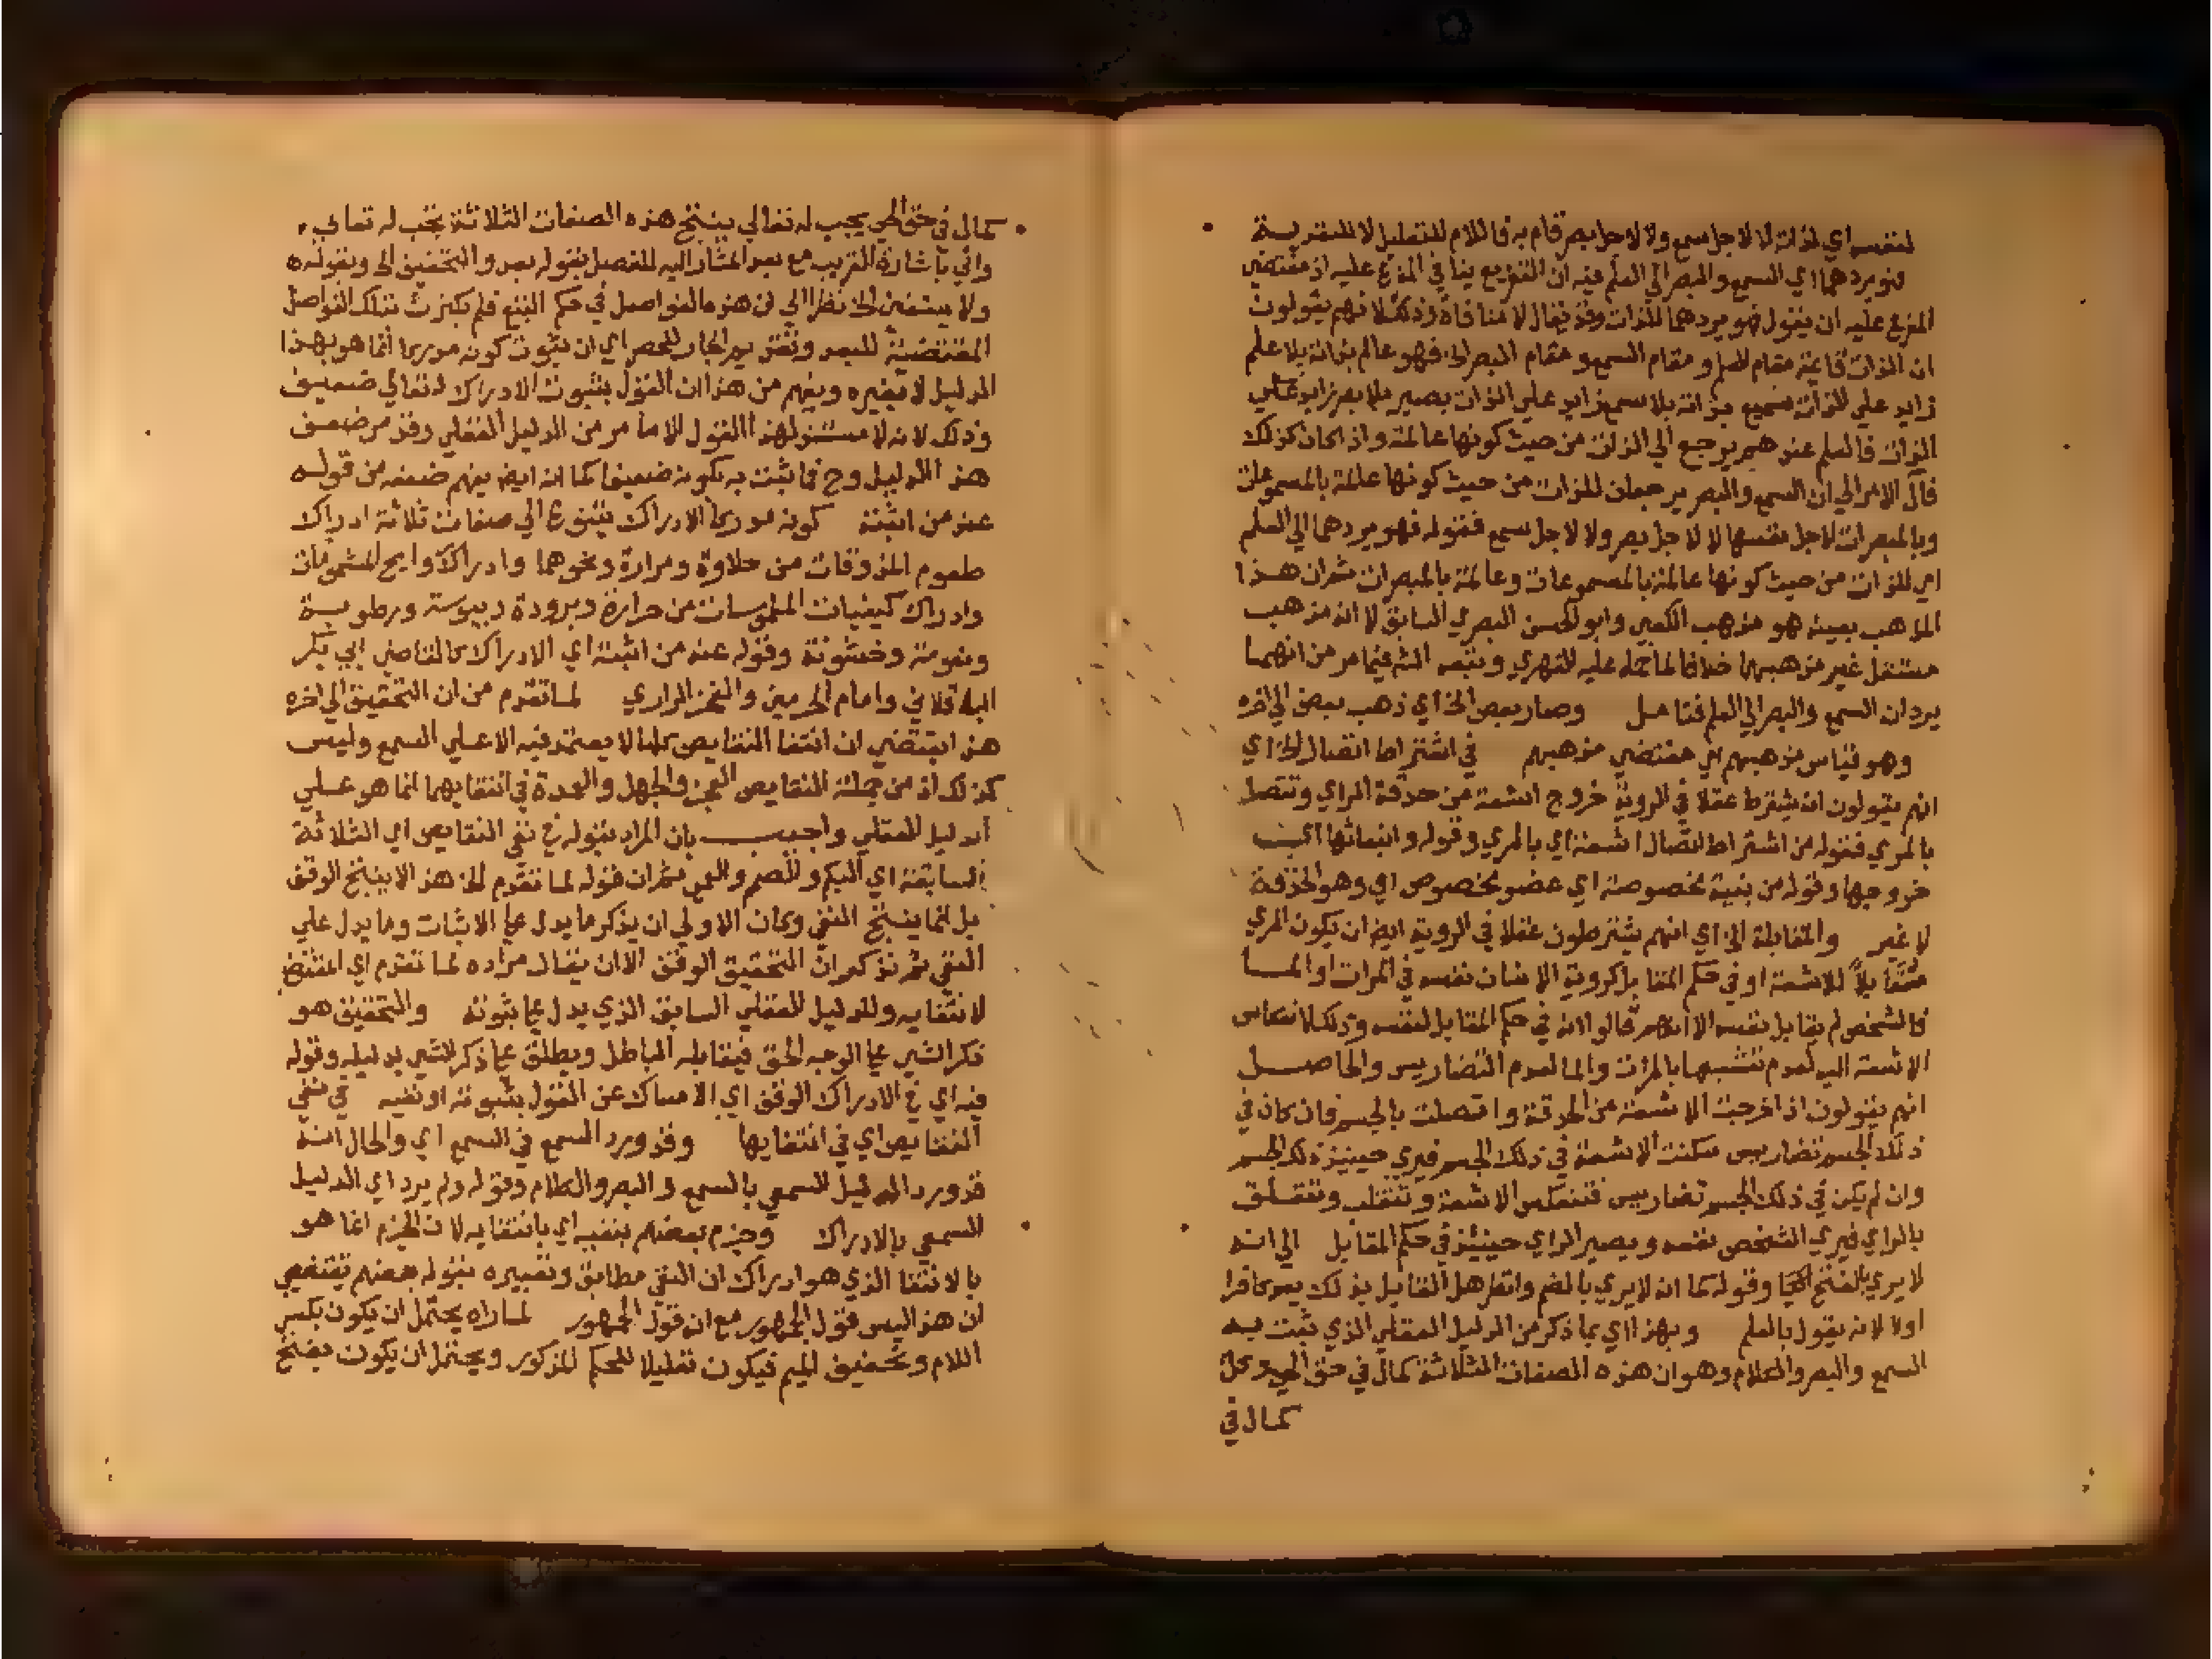 لنفسه اي لذاته لا لاجل سمع ولا لاجل بصر قام به فاللام للتعليل لا للتعدية
فهو يردهما اي السمع والبصر الي العلم فيه ان التفريع ينافي المفرع عليه اذ مقتضي
المفرع عليه ان يقول فهو يردهما للذات وقد يقال لا منافاة وذلك لانهم يقولون
ان الذات قائمة مقام العلم و مقام السمع و مقام البصر الخ فهو عالم بذاته بلا علم
زايد علي الذات سميع بذاته بلا سمع زايد علي الذات بصير بلا بصر زايد علي
الذات فالعلم عندهم يرجع الي الذات من حيث كونها عالمة واذا كان كذلك
فآل الامر الي ان السمع والبصر يرجعان للذات من حيث كونها عالمة بالمسموعات
وبالمبصرات لاجل نفسها لا لاجل بصر ولا لاجل سمع فقوله فهو يردهما الي العلم
اي للذات من حيث كونها عالمة بالمسموعات وعالمة بالمبصرات ثم ان هذا
المذهب بعينه هو مذهب الكعبي وابو الحسن البصري السابق لا انه مذهب
مستقل غير مذهبهما خلافا لما حمله عليه النهري و فيما مر من انهما
يردان السمع والبصر الي العلم فتامل وصار بعض الخ اي ذهب بعض الي اخره
وهو قياس مذهبهم اي مقتضي مذهبهم في اشتراط اتصال الخ اي
انهم يقولون انه يشترط عقلا في الروية خروج اشعة من حدقة الراي وتتصل
بالمري فقوله من اشتراط اتصال اشعة اي بالمري وقوله وانبعاثها اي
خروجها وقوله من بنية مخصوصة اي عضو مخصوص اي وهو الحدقة
لا غير والمقابلة الخ اي انهم يشترطون عقلا في الروية ايضا ان يكون المري
مقابلاً للاشعة او في حكم المقابل كروية الانسان نفسه في المرات او الما
فالشخص لم يقابل نفسه الا انهم قالوا انه في حكم المقابل لنفسه وذلك لانعكاس
الاشعة اليه لعدم تشبثها بالمرات والما لعدم التضاريس والحاصل
انهم يقولون اذا خرجت الاشعة من الحدقة واتصلت بالجسم فان كان في
ذلك الجسم تضاريس سكنت الاشعة في ذلك الجسم فيري حينيذ ذلك الجسم
وان لم يكن في ذلك الجسم تضاريس فتنعكس الاشعة وتنقلب وتتعلق
بالراي فيري الشخص نفسه ويصير الراي حينيذ في حكم المقابل الي انه
لا يري بالفتح وقوله كما انه لا يري بالضم وانظر هل القايل بذلك يعد كافرا
اولا لانه يقول بالعلم وبهذا اي بما ذكر من الدليل العقلي الذي ثبت به
السمع والبصر والكلام وهو ان هذه الصفات الثلاثة كمال في حق الحي وكل
كمال في
كمال في حق الحي يجب له تعالي ينتج هذه الصفات الثلاثة تجب له تعالي
واتي باشارة القريب مع بعد المشار اليه للفصل بقوله بعد والتحقيق الخ وبقوله
ولا يستغني الخ نظرا الي ان هذه الفواصل في حكم التبع فلم يكترث بتلك الفواصل
المقتضية للبعد وتقديم الجار للحصر اي ان ثبوت كونه مدركا انما هو بهذا
الدليل لا بغيره ويفهم من هذا ان القول بثبوت الادراك له تعالي ضعيف
وذلك لانه لا مستند لهذا القول الا ما مر من الدليل العقلي وقد مر ضعف
هذا الدليل وح فما ثبت به يكون ضعيفا كما انه ايضا يفهم ضعفه من قوله
عند من اثبته كونه مدركا الادراك يتنوع الي صفات ثلاثة ادراك
طعوم المذوقات من حلاوة ومرارة ونحوهما وادراك روايح المشمومات
وادراك كيفيات الملموسات من حرارة وبرودة ويبوسة ورطوبة
ونعومة وخشونة وقوله عند من اثبته اي الادراك كالقاضي ابي بكر
الباقلاني وامام الحرمين والفخر الرازي لما تقدم من ان التحقيق الي اخره
هذا يقتضي ان انتفا النقايص كلها لا يعتمد فيه الا علي السمع وليس
كذلك اذ من جملة النقايص العجز والجهل والعمدة في انتفايهما انما هو علي
الدليل العقلي واجيب بان المراد بقوله في نفي النقايص اي الثلاثة
السابقة اي البكم والصمم والعمي ثم ان قوله لما تقدم الخ هذا لا ينتج الوقف
بل انما ينتج النفي وكان الاولي ان يذكر ما يدل علي الاثبات وما يدل علي
النفي ثم يذكر ان التحقيق الوقف الا ان يقال مراده لما تقدم اي المقتضي
لانتفايه وللدليل العقلي السابق الذي يدل علي ثبوته والتحقيق هو
ذكر الشي علي الوجه الحق فيقابله الباطل ويطلق علي ذكر الشي بدليله وقوله
فيه اي في الادراك الوقف اي الامساك عن القول بثبوته او نفيه في نفي
النقايص اي في انتفايها وقد ورد السمع في السمع اي والحال انه
قد ورد الدليل السمعي بالسمع والبصر والكلام وقوله ولم يرد اي الدليل
السمعي بالادراك وجزم بعضهم بنفيه اي بانتفايه لان الجزم انما هو
بالانتفا الذي هو ادراك ان النفي مطابق وتعبيره بقوله بعضهم يقتضي
ان هذا ليس قول الجمهور مع انه قول الجمهور لما راه يحتمل ان يكون بكسر
اللام وتخفيف الميم فيكون تعليلا للحكم المذكور ويحتمل ان يكون بفتح